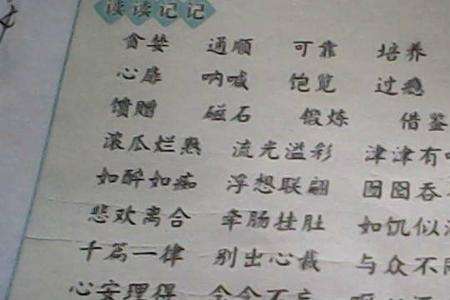 读读记记
贪婪 通顺 可靠 培养
心扉 呐喊 饱览 过瘾
馈赠 磁石 锻炼 借鉴
滚瓜烂熟 流光溢彩 津津有
如醉如痴 浮想联翩 囫囵吞
悲欢离合 牵肠挂肚 如饥似
千篇一律 别出心裁 与众不同
心安理得 念念不忘